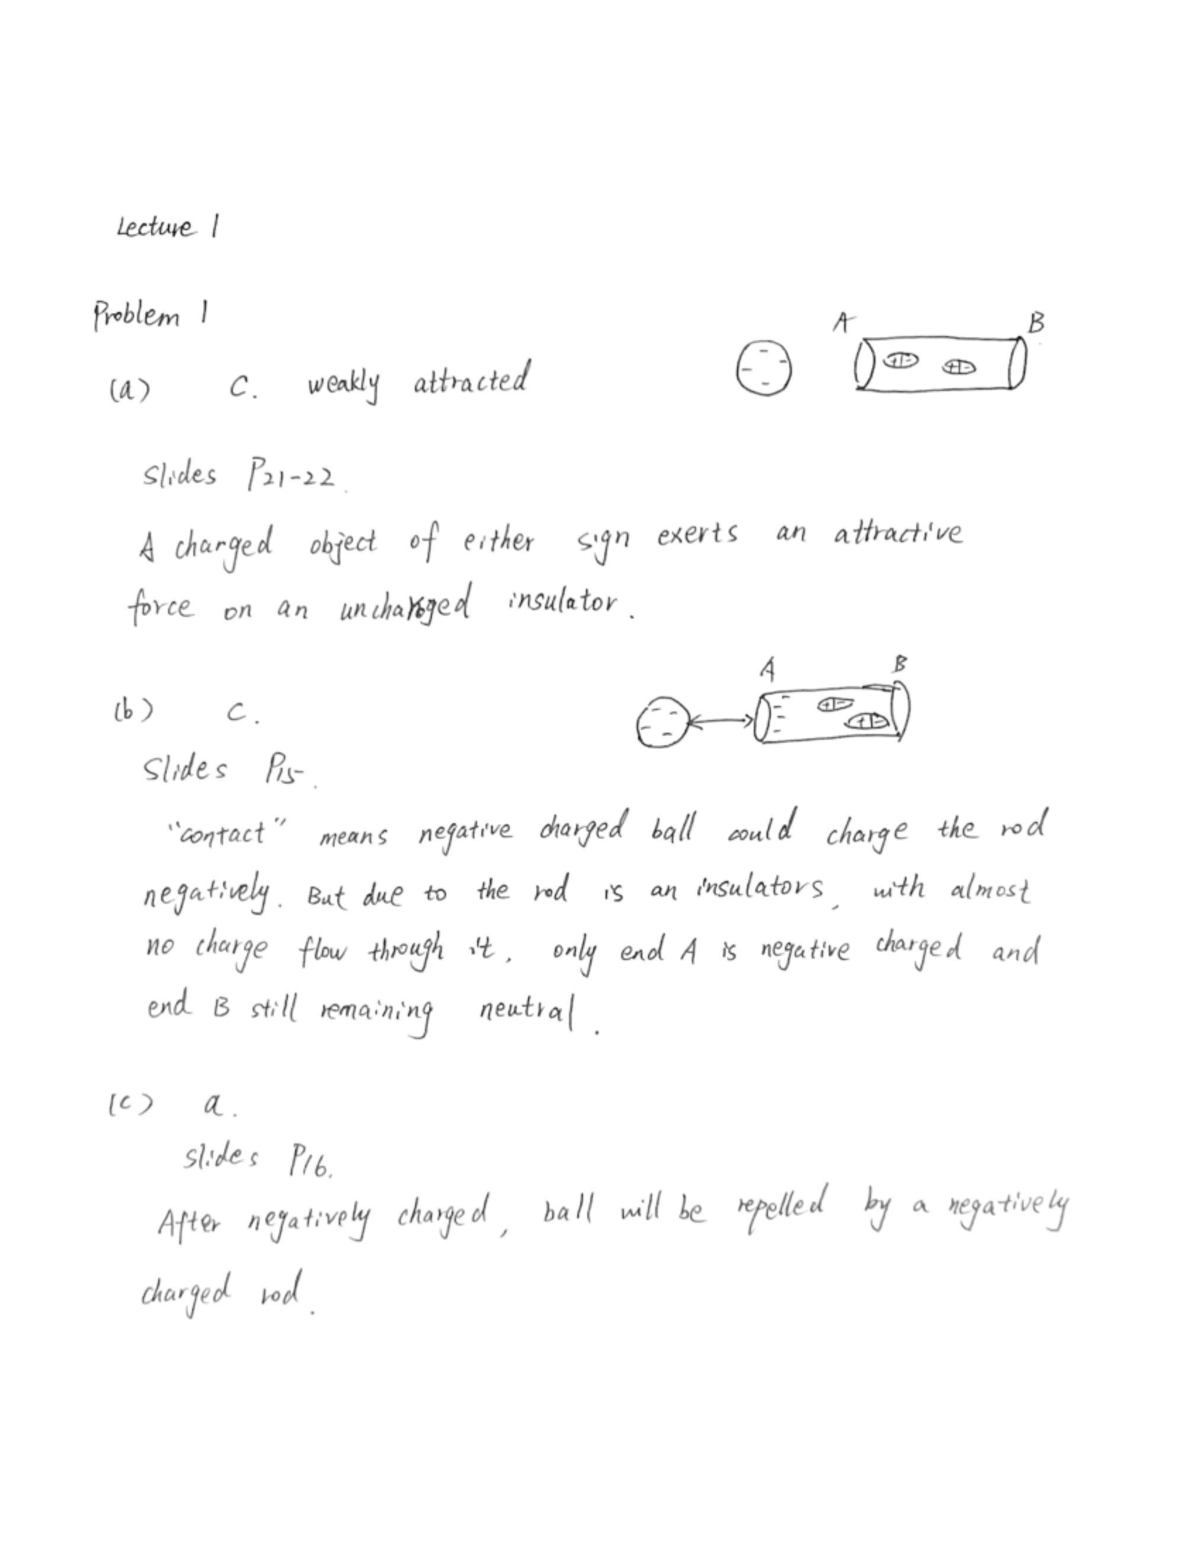 Lecture 1
Problem 1
A B
(a) C. weakly attracted
Slides P21-22.
A charged object of either sign exerts an attractive
force on an uncharged insulator.
A B
(b) C.
Slides P15.
"contact" means negative charged ball could charge the rod
negatively. But due to the rod is an insulators, with almost
no charge flow through it, only end A is negative charged and
end B still remaining neutral.
(c) a.
slides P16.
After negatively charged, ball will be repelled by a negatively
charged rod.